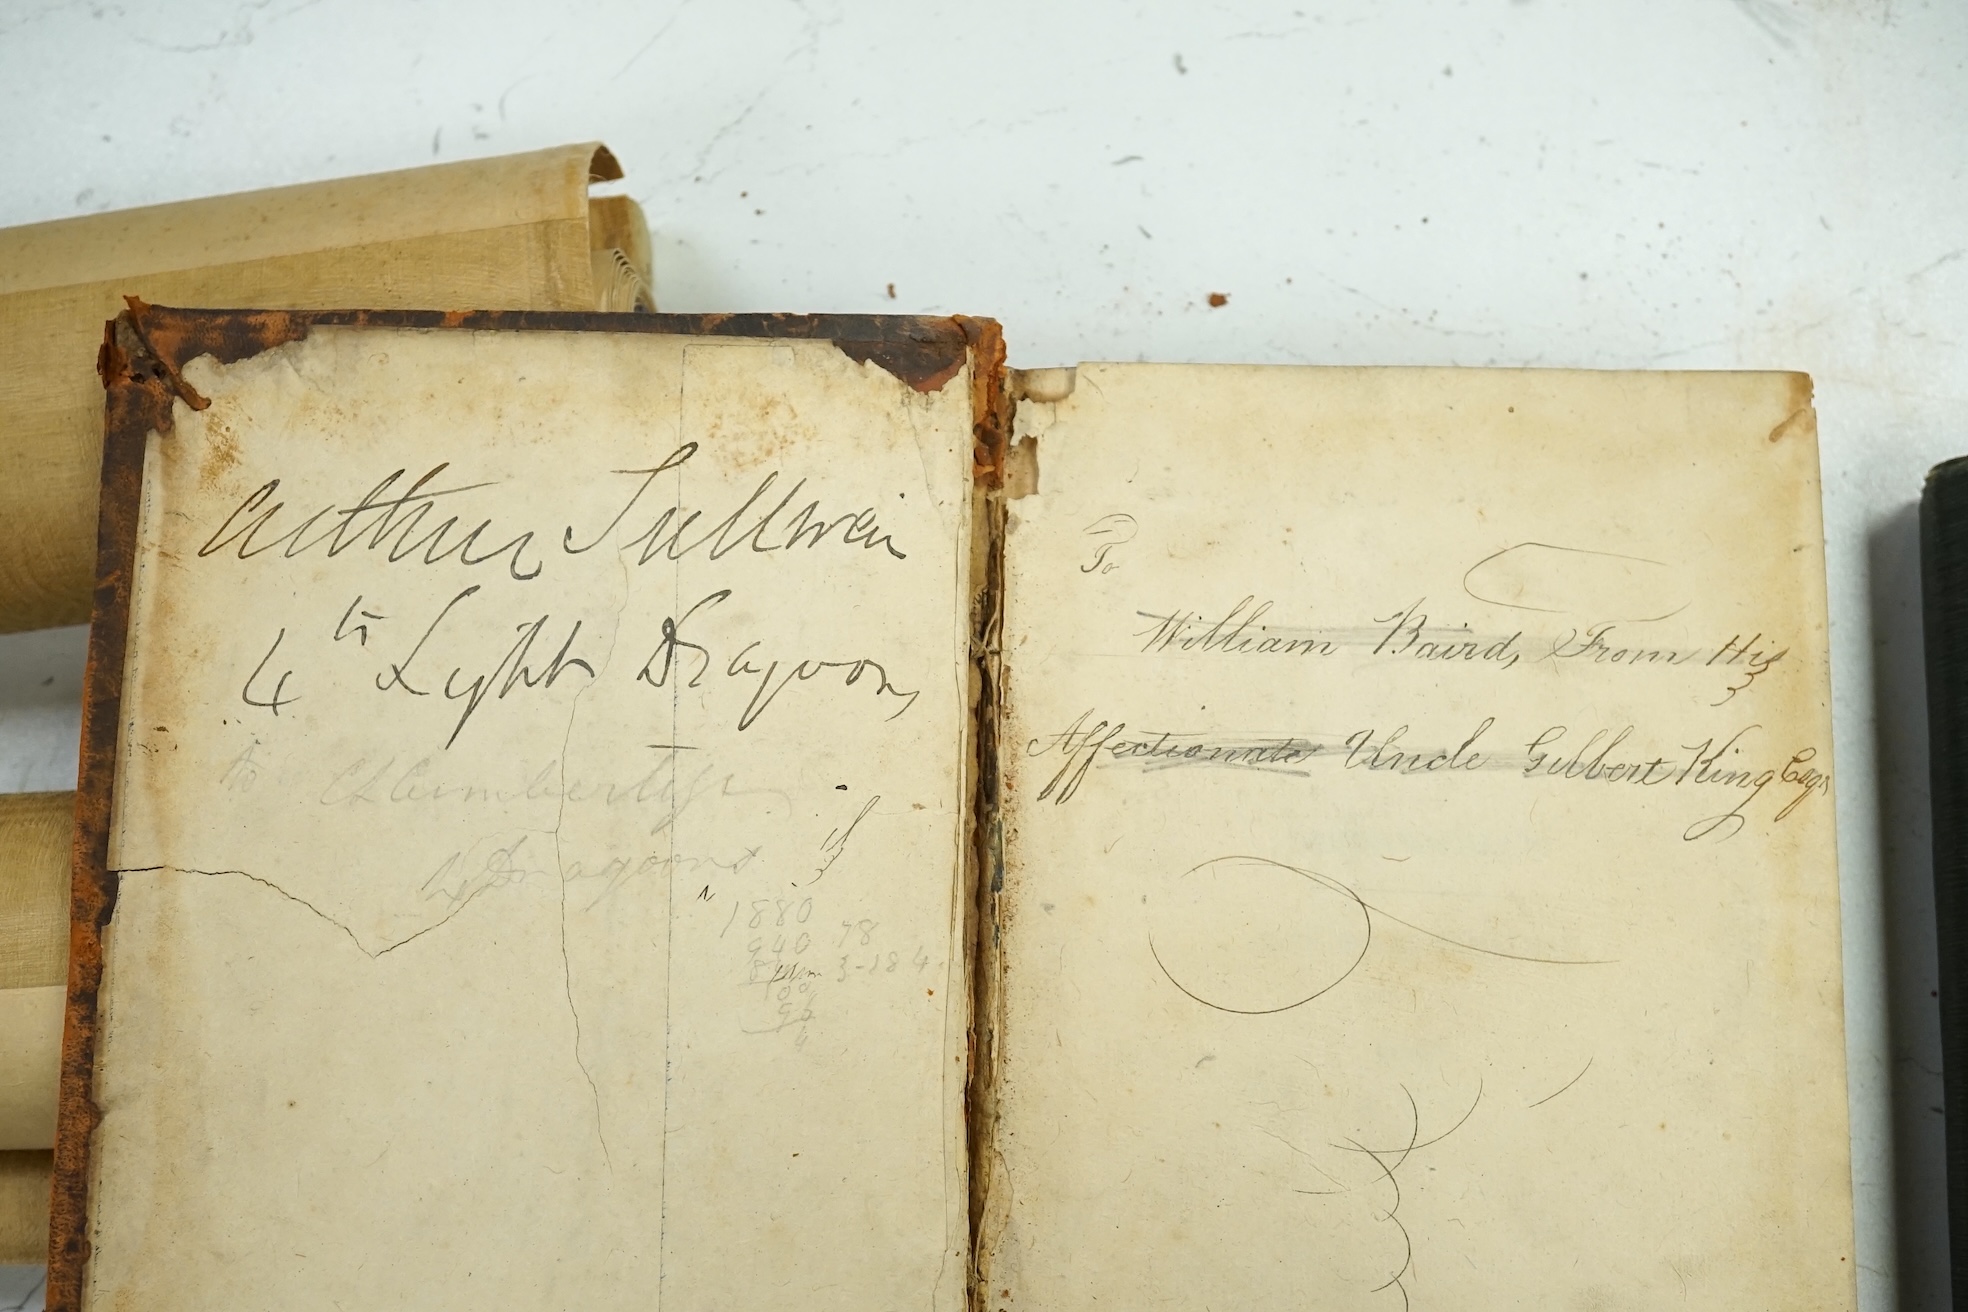 Arthur Sullivan
4th Light Dragoons
to
4 Dragoons
1880
940 78
3-184
To
William Baird, From His
Affectionate Uncle Gilbert King Esqr